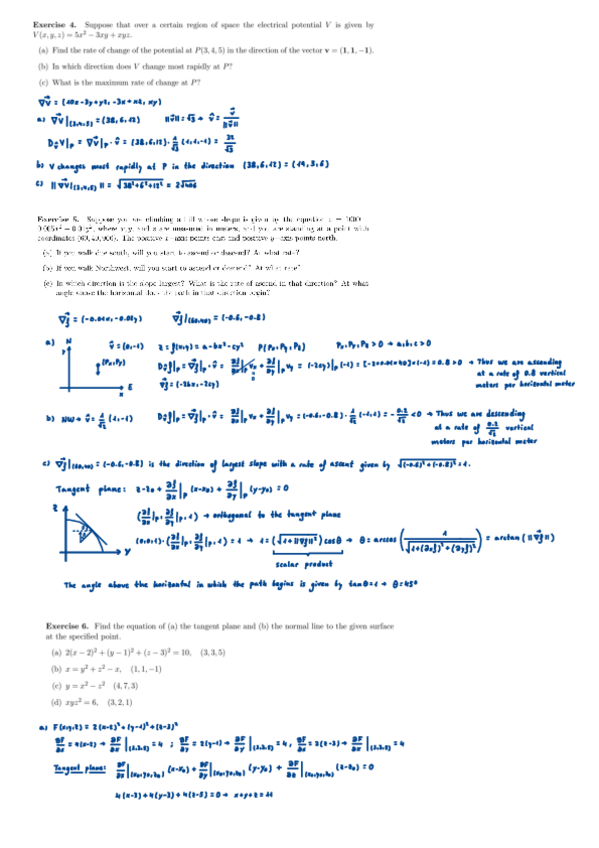 Exercise 4. Suppose that over a certain region of space the electrical potential V is given by
V(x, y, z) = 5x² − 3xy + xyz.
(a) Find the rate of change of the potential at P(3, 4, 5) in the direction of the vector v = (1, 1, −1).
(b) In which direction does V change most rapidly at P?
(c) What is the maximum rate of change at P?
∇V = (10x-3y+yz, -3x+xz, xy)
a) ∇V|(3,4,5) = (38,6,12) ||v|| = √3 → v̂ = v/||v||
Dv̂V|p = ∇V|p · v̂ = (38,6,12) · 1/√3 (1,1,-1) = 32/√3
b) V changes most rapidly at P in the direction (38,6,12) = (19,3,6)
c) ||∇V|(3,4,5)|| = √38²+6²+12² = 2√406
Exercise 5. Suppose you are climbing a hill whose shape is given by the equation z = 1000 −
0.005x² − 0.01y², where x, y, and z are measured in meters, and you are standing at a point with
coordinates (60, 40, 966). The positive x−axis points east and positive y−axis points north.
(a) If you walk due south, will you start to ascend or descend? At what rate?
(b) If you walk Northwest, will you start to ascend or descend? At what rate?
(c) In which direction is the slope largest? What is the rate of ascend in that direction? At what
angle above the horizontal does the path in that direction begin?
∇f|(60,40) = (-0.6, -0.8)
a) N v̂ = (0,-1) z = f(x,y) = a-bx²-cy² P(Px,Py,Pz) Px,Py,Pz > 0 → a,b,c > 0
(Px,Py)
E
→ Thus we are ascending
∇f = (-2bx, -2cy)
at a rate of 0.8 vertical
meters per horizontal meter
→ Thus we are descending
vertical
meters per horizontal meter
c) ∇f|(60,40) = (-0.6,-0.8) is the direction of largest slope with a rate of ascent given by √(-0.6)²+(-0.8)² = 1.
Tangent plane: z-z₀ + ∂f/∂x|p (x-x₀) + ∂f/∂y|p (y-y₀) = 0
z
(∂f/∂x|p, ∂f/∂y|p, 1) → orthogonal to the tangent plane
y
scalar product
The angle above the horizontal in which the path begins is given by tanθ=1 → θ=45°
Exercise 6. Find the equation of (a) the tangent plane and (b) the normal line to the given surface
at the specified point.
(a) 2(x − 2)² + (y − 1)² + (z − 3)² = 10, (3, 3, 5)
(b) x = y² + z² − x, (1, 1, −1)
(c) y = x² − z² (4, 7, 3)
(d) xyz² = 6, (3, 2, 1)
a) F(x,y,z) = 2(x-2)²+(y-1)²+(z-3)²
∂F/∂x = 4(x-2) → ∂F/∂x|(3,3,5) = 4 ; ∂F/∂y = 2(y-1) → ∂F/∂y|(3,3,5) = 4, ∂F/∂z = 2(z-3) → ∂F/∂z|(3,3,5) = 4
Tangent plane: ∂F/∂x|(x₀,y₀,z₀) (x-x₀) + ∂F/∂y|(x₀,y₀,z₀) (y-y₀) + ∂F/∂z|(x₀,y₀,z₀) (z-z₀) = 0
4(x-3)+4(y-3)+4(z-5) = 0 → x+y+z = 11